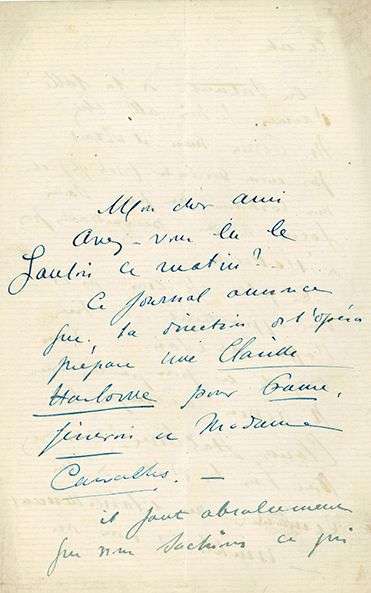 Mon cher ami
Avez-vous lu le
Gaulois ce matin?
Ce journal annonce
que la direction de l'opéra
prépare une Clarisse
Harlowe pour
et Madame
Carvalho. —
il faut absolument
que nous sachions ce qui